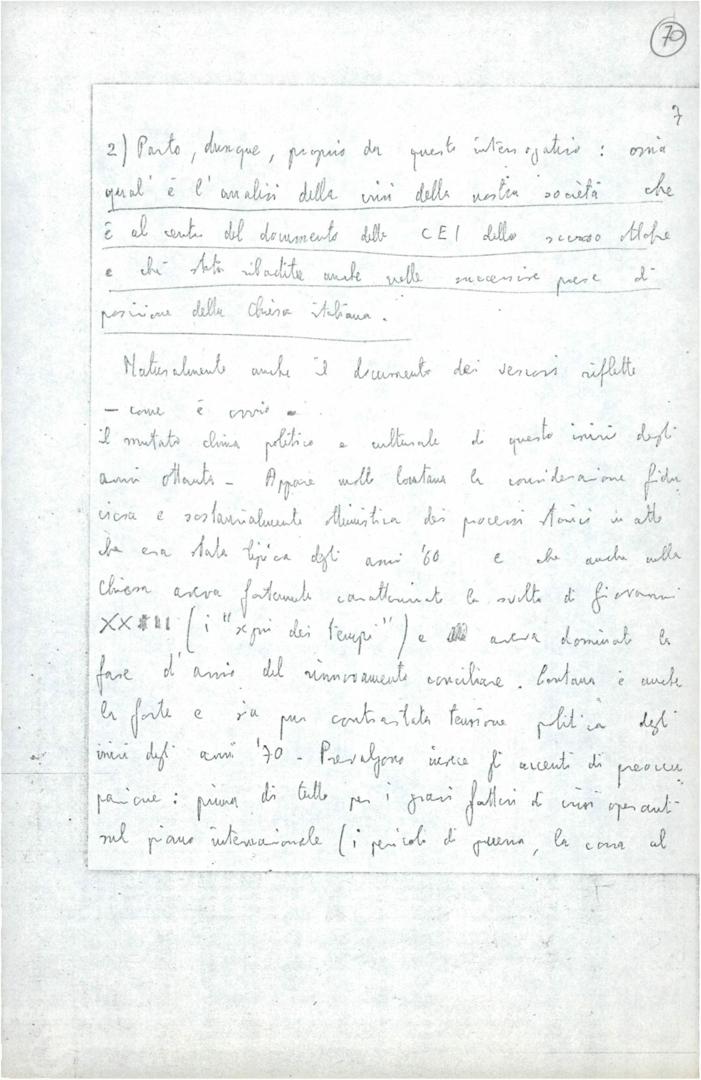 70
7
2) Parto, dunque, proprio da questo interrogativo: ossia
qual'è l'analisi della crisi della nostra società che
è al centro del documento della CEI dello scorso ottobre
e che è stata ribadita anche nelle successive prese di
posizione della Chiesa italiana.
Naturalmente anche il documento dei vescovi riflette
– come è ovvio –
il mutato clima politico e culturale di questo inizio degli
anni ottanta – Appare molto lontana la considerazione fidu
ciosa e sostanzialmente ottimistica dei processi storici in atto
che era stata tipica degli anni '60 e che anche nella
Chiesa aveva fortemente caratterizzato la svolta di Giovanni
XXIII (i "segni dei tempi") e aveva dominato la
fase d'avvio del rinnovamento conciliare. Lontana è anche
la forte e sia pur contrastata tensione politica degli
inizi degli anni '70 – Prevalgono invece gli accenti di preoccu
pazione: prima di tutto per i gravi fattori di crisi operanti
sul piano internazionale (i pericoli di guerra, la corsa al